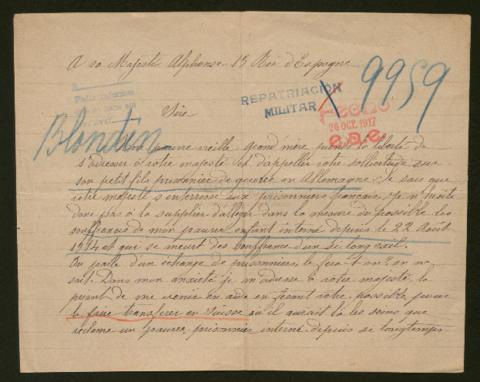 A sa Majesté Alphonse 13 Roi d'Espagne
REPATRIACION
MILITAR
9959
26 OCT. 1917
Sire
Blondin
Une pauvre vieille grand mère prend la liberté de
s'adresser à votre majesté et d'appeller votre sollicitude sur
son petit fils prisonnier de guerre en Allemagne. Je sais que
votre majesté s'intéresse aux prisonniers français, je n'hésite
donc pas à la supplier d'alléger dans la mesure du possible les
souffrances de mon pauvre enfant interné depuis le 22 Août
1914 et qui se meurt des souffrances d'un si long exil.
On parle d'un échange de prisonniers, le fera-t-on? on ne
sait. Dans mon anxiété je m'adresse à votre majesté, la
priant de me venir en aide en faisant votre possible pour
le faire transférer en Suisse où il aurait là les soins que
réclame un pauvre prisonnier interné depuis si longtemps